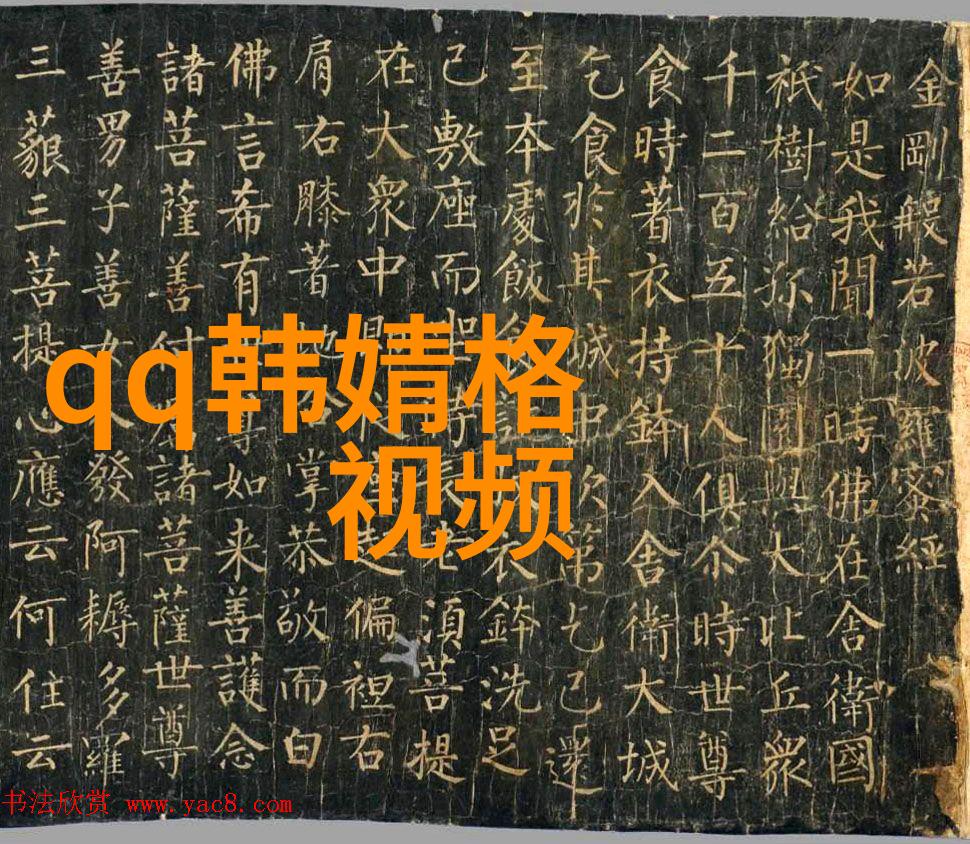 金剛般若波羅蜜經
如是我聞一時佛在舍衛國
祇樹給孤獨園與大比丘眾
千二百五十人俱尒時世尊
食時著衣持鉢入舍衛大城
乞食於其城中次第乞已還
至本處飯食衣鉢洗足
已敷座而時長老須菩提
在大眾中起偏袒右
肩右膝著地掌恭敬而白
佛言希有尊如来善護念
諸菩薩善付諸菩薩世尊
善男子善女人發阿耨多羅
三藐三菩提心應云何住云
qq韩婧格
视频
书法欣赏 www.yac8.com